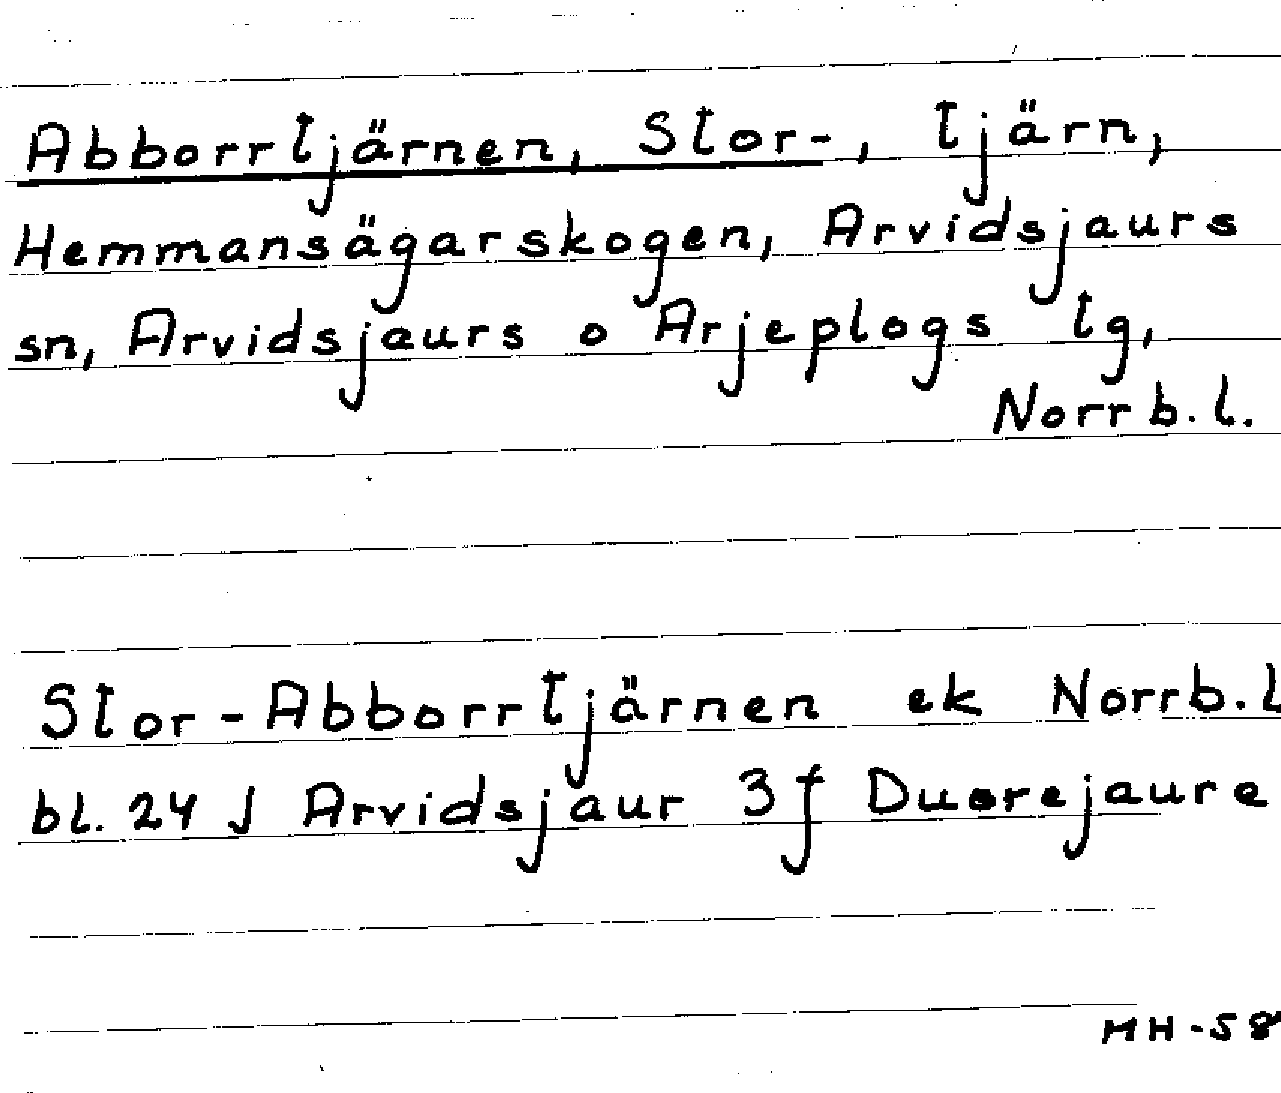 Abborrtjärnen, Stor-, tjärn,
Hemmansägarskogen, Arvidsjaurs
sn, Arvidsjaurs o Arjeplogs tg,
Norrb.l.
Stor-Abborrtjärnen ek Norrb.l
bl. 24 J Arvidsjaur 3f Duorejaure
MH-58